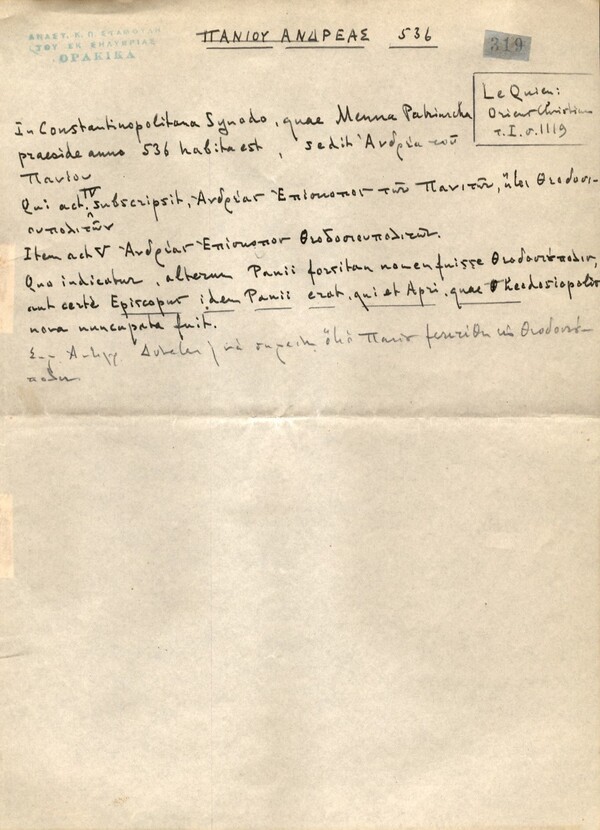 ΑΝΑΣΤ. Κ. Π. ΣΤΑΜΟΥΛΗ
ΤΟΥ ΕΚ ΣΗΛΥΒΡΙΑΣ
ΘΡΑΚΙΚΑ
ΠΑΝΙΟΥ ΑΝΔΡΕΑΣ 536
319
Le Quien:
Oriens Christian
τ. I. σ. 1119
In Constantinopolitana Synodo, quae Menna Patriarcha
praeside anno 536 habita est, sedit Ἀνδρέα τοῦ
Πανίου
Qui act. IV subscripsit, Ἀνδρέας Ἐπίσκοπος τῶν Πανιτῶν, ἤτοι Θεοδοσι-
ουπολιτῶν
Item act V Ἀνδρέας Ἐπίσκοπος Θεοδοσιουπολιτῶν.
Quo indicatur, alterum Panii forsitan nomen fuisse Θεοδοσιόπολιν,
aut certè Episcopus idem Panii erat, qui et Apri, quae Theodosiopolis
nova nuncupata fuit.
Θεοδοσιό-
πολιν.